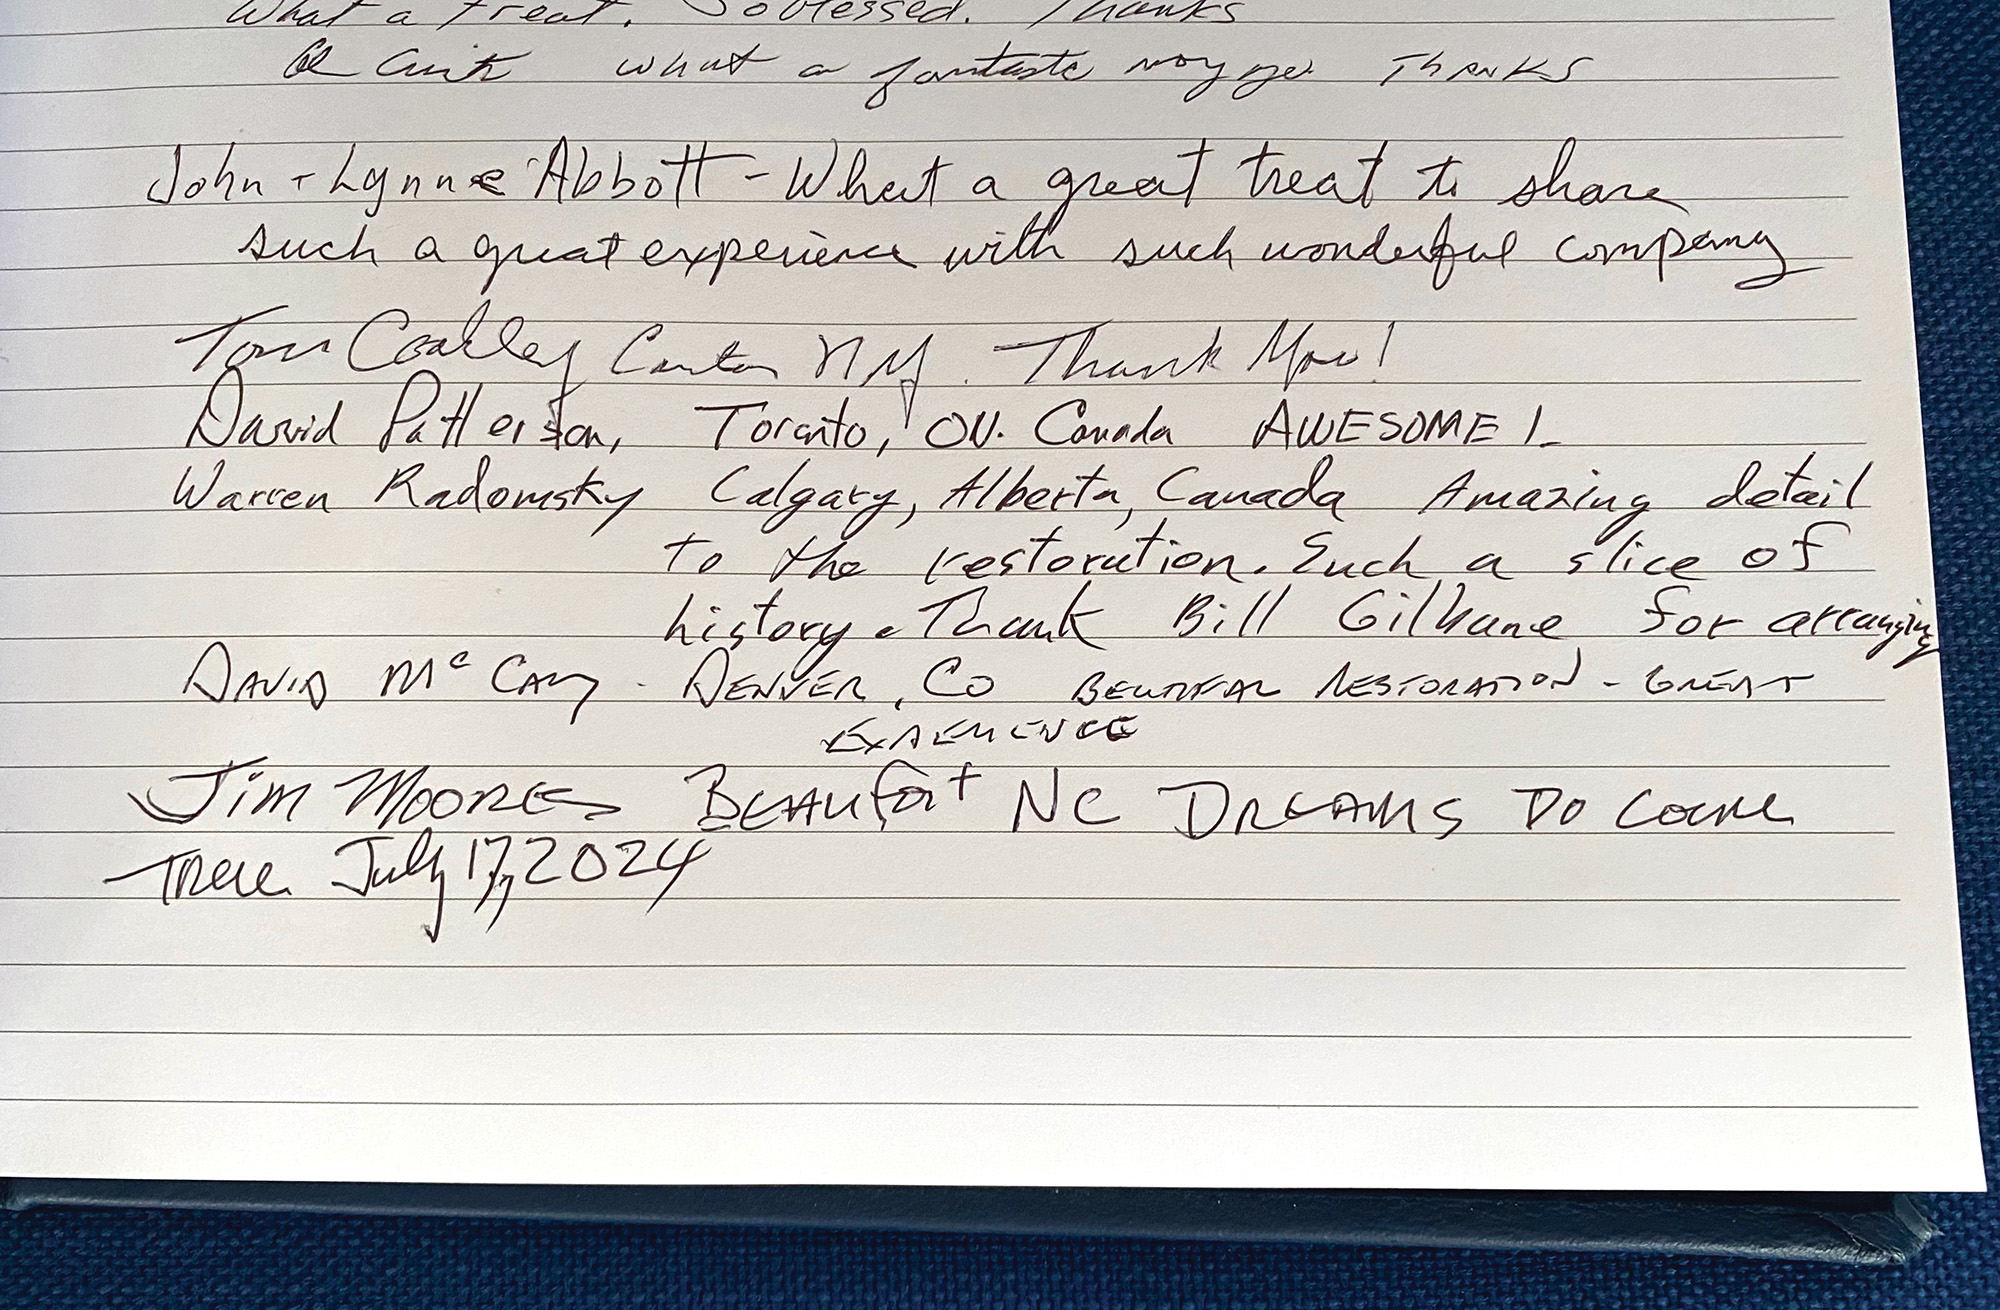 What a treat. So blessed. Thanks
what a fantastic voyage THANKS
John + Lynne Abbott - What a great treat to share
such a great experience with such wonderful company
Tom Coakley Canton NY. Thank You!
David Patterson, Toronto, ON. Canada AWESOME!
Warren Radomsky Calgary, Alberta, Canada Amazing detail
to the restoration. Such a slice of
history. Thank Bill Gilkane for arranging
DAVID McCAY - DENVER, CO BEUTIFAL RESTORATION - GREAT
EXPERIENCE
JIM MOORES BEAUfort NC DREAMS DO COME
TRUE July 17, 2024